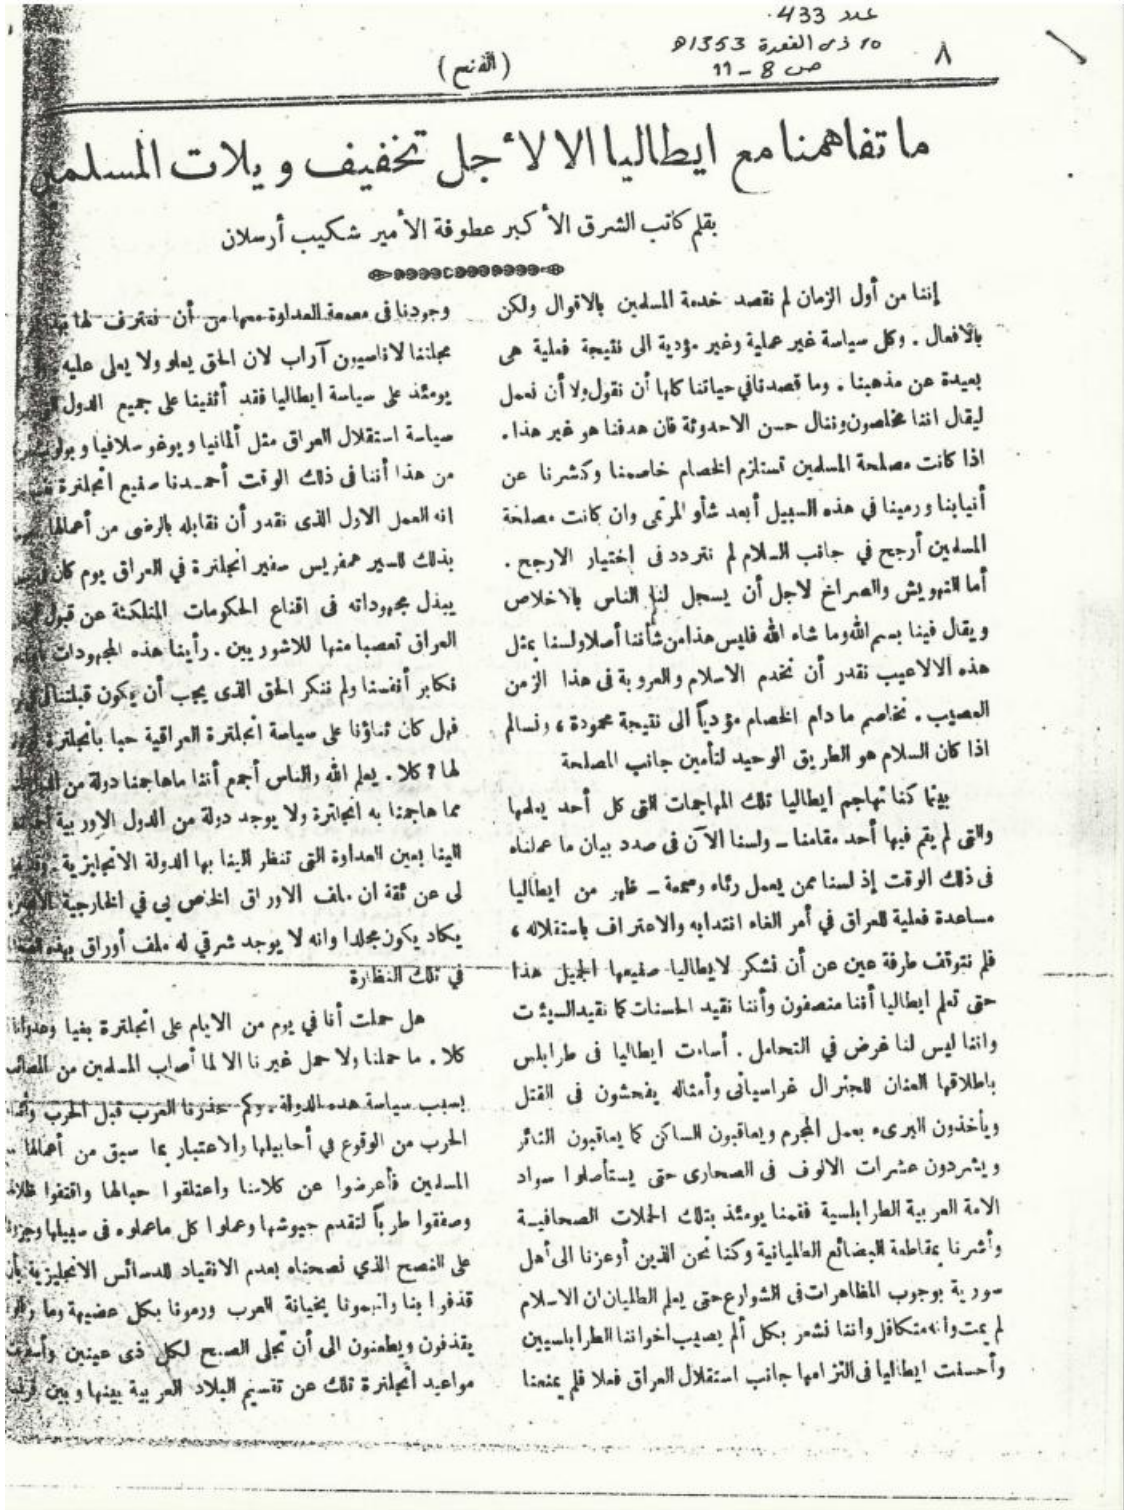 عدد 433.
10 ذى القعدة 1353ه
ص 8 - 11
٨
( الفتح )
ما تفاهمنا مع ايطاليا الا لأجل تخفيف ويلات المسلمين
بقلم كاتب الشرق الأكبر عطوفة الأمير شكيب أرسلان
إننا من أول الزمان لم نقصد خدمة المسلمين بالاقوال ولكن
بالافعال . وكل سياسة غير عملية وغير مؤدية الى نتيجة فعلية هى
بعيدة عن مذهبنا . وما قصدنا في حياتنا كلها أن نقول ولا أن نعمل
ليقال اننا مخلصون وننال حسن الاحدوثة فان هدفنا هو غير هذا .
اذا كانت مصلحة المسلمين تستلزم الخصام خاصمنا وكشرنا عن
أنيابنا ورمينا في هذه السبيل أبعد شأو المرتمى وان كانت مصلحة
المسلمين أرجح في جانب السلام لم نتردد فى اختيار الارجح .
أما التهويش والصراخ لاجل أن يسجل لنا الناس بالاخلاص
ويقال فينا بسم الله وما شاء الله فليس هذا من شأننا أصلا ولسنا بمثل
هذه الالاعيب نقدر أن نخدم الاسلام والعروبة فى هذا الزمن
العصيب . نخاصم ما دام الخصام مؤدياً الى نتيجة محمودة ، ونسالم
اذا كان السلام هو الطريق الوحيد لتأمين جانب المصلحة
بينما كنا نهاجم ايطاليا تلك المهاجمات التى كل أحد يعلمها
والتى لم يقم فيها أحد مقامنا ــ ولسنا الآن فى صدد بيان ما عملناه
فى ذلك الوقت إذ لسنا ممن يعمل رئاء وسمعة ــ ظهر من ايطاليا
مساعدة فعلية للعراق في أمر الغاء انتدابه والاعتراف باستقلاله ،
فلم نتوقف طرفة عين عن أن نشكر لايطاليا صنيعها الجميل هذا
حتى تعلم ايطاليا أننا منصفون وأننا نقيد الحسنات كما نقيد السيئات
واننا ليس لنا غرض في التحامل . أساءت ايطاليا فى طرابلس
باطلاقها العنان للجنرال غراسيانى وأمثاله يفحشون فى القتل
ويأخذون البرىء بعمل المجرم ويعاقبون الساكن كما يعاقبون الثائر
ويشردون عشرات الالوف فى الصحارى حتى يستأصلوا سواد
الامة العربية الطرابلسية فقمنا يومئذ بتلك الحملات الصحافية
وأشرنا بمقاطعة البضائع الطليانية وكنا نحن الذين أوعزنا الى أهل
سورية بوجوب المظاهرات فى الشوارع حتى يعلم الطليان ان الاسلام
لم يمت وانه متكافل واننا نشعر بكل ألم يصيب اخواننا الطرابلسيين
وأحسنت ايطاليا فى التزامها جانب استقلال العراق فعلا فلم يمنعنا
وجودنا فى معمعة العداوة معها من أن نعترف لها
مجلتنا لاناسيون آراب لان الحق يعلو ولا يعلى عليه
يومئذ على سياسة ايطاليا فقد أثنينا على جميع الدول
سياسة استقلال العراق مثل ألمانيا ويوغو سلافيا
من هذا أننا فى ذلك الوقت أحمدنا صنيع انجلترة
انه العمل الاول الذى نقدر أن نقابله بالرضى من أعمالها
بذلك للسير همفريس سفير انجلترة في العراق يوم كان
يبذل مجهوداته فى اقناع الحكومات المتلكئة عن قبول
العراق تعصبا منها للاشوريين . رأينا هذه المجهودات
نكابر أنفسنا ولم ننكر الحق الذى يجب أن يكون قبلتنا
فهل كان ثناؤنا على سياسة انجلترة العراقية حبا بانجلترة
لها ؟ كلا . يعلم الله والناس أجمع أننا ما هاجمنا دولة من
مما هاجمنا به انجلترة ولا يوجد دولة من الدول الاوربية
الينا بعين العداوة التى تنظر الينا بها الدولة الانجليزية
لى عن ثقة ان ملف الاوراق الخاص بى في الخارجية
يكاد يكون مجلدا وانه لا يوجد شرقي له ملف أوراق بهذه
في تلك النظارة
هل حملت أنا في يوم من الايام على انجلترة بغيا وعدوانا
كلا . ما حملنا ولا حمل غيرنا الا لما أصاب المسلمين من المصائب
بسبب سياسة هذه الدولة . وكم حذرنا العرب قبل الحرب
الحرب من الوقوع في أحابيلها والاعتبار بما سبق من أعمالها
المسلمين فأعرضوا عن كلامنا واعتلقوا حبالها واقتفوا
وصفقوا طرباً لتقدم جيوشها وعملوا كل ما عملوه فى سبيلها
على النصح الذي نصحناه بعدم الانقياد للدسائس الانجليزية بأن
قذفوا بنا واتهمونا بخيانة العرب ورمونا بكل عضيهة وما زالوا
يقذفون ويطعنون الى أن تجلى الصبح لكل ذى عينين
مواعيد انجلترة تلك عن تقسيم البلاد العربية بينها وبين